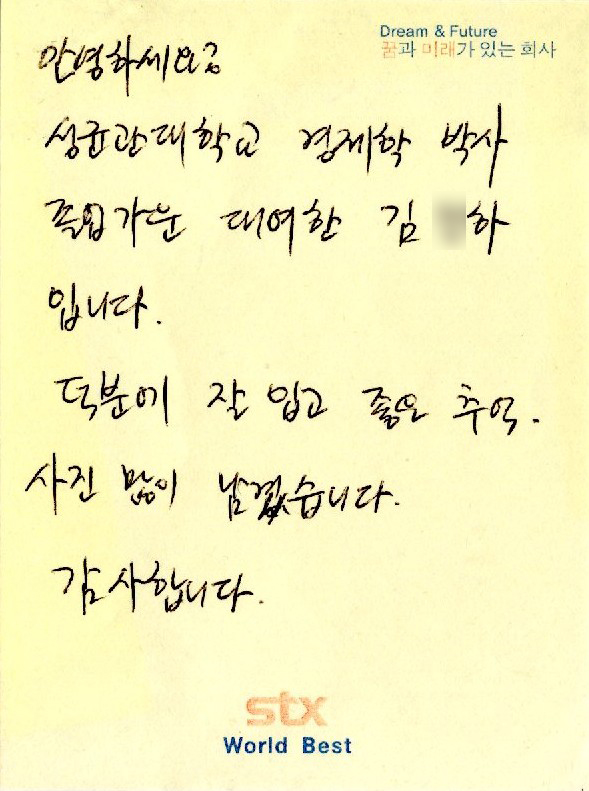 Dream & Future
꿈과 미래가 있는 회사
안녕하세요?
성균관대학교 경제학 박사
졸업가운 대여한 김 하
입니다.
덕분에 잘 입고 좋은 추억.
사진 많이 남겼습니다.
감사합니다.
stx
World Best